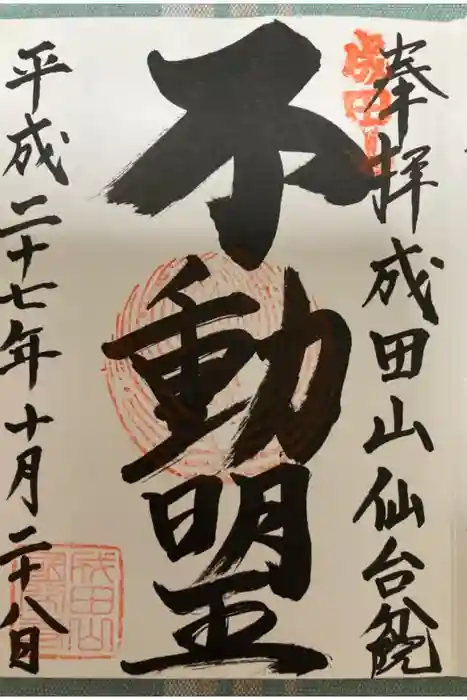 奉拝 成田山仙台
不動明王
平成二十七年十月二十八日
成田山